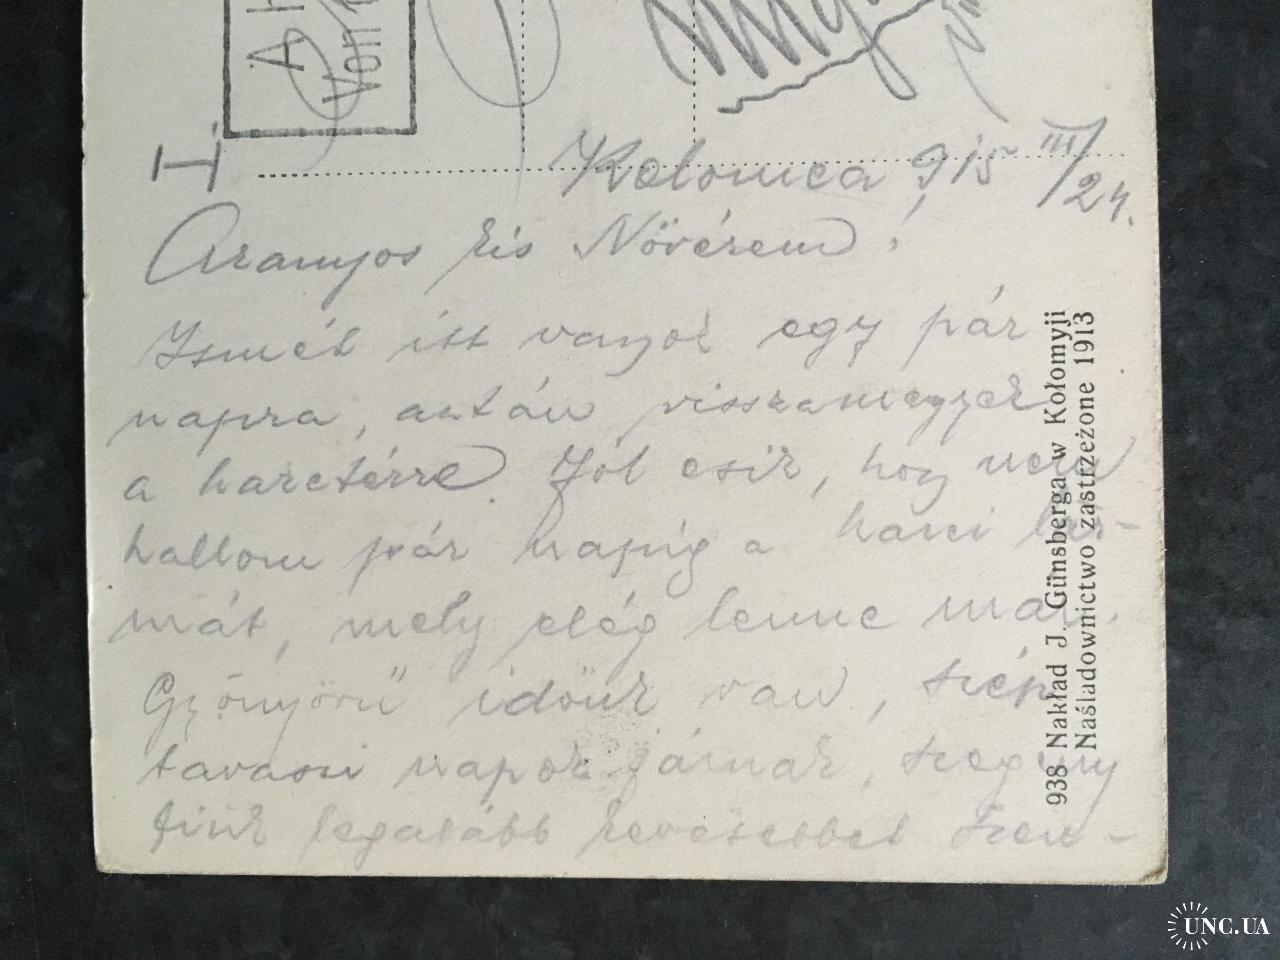 I.
Kolomea 915 III/24.
Aranyos kis Növérem!
Ismét itt vagyok egy pár
napra, aztán visszamegyek
a harctérre. Jól esik, hogy nem
hallom pár napig a harci lár-
mát, mely elég lenne már.
Gyönyörü idönk van, szép
tavaszi napok járnak, szegény
fiúk legalább kevesebbet szen-
938 Nakład J. Günsberga w Kołomyji
Naśladownictwo zastrzeżone 1913
UNC.UA